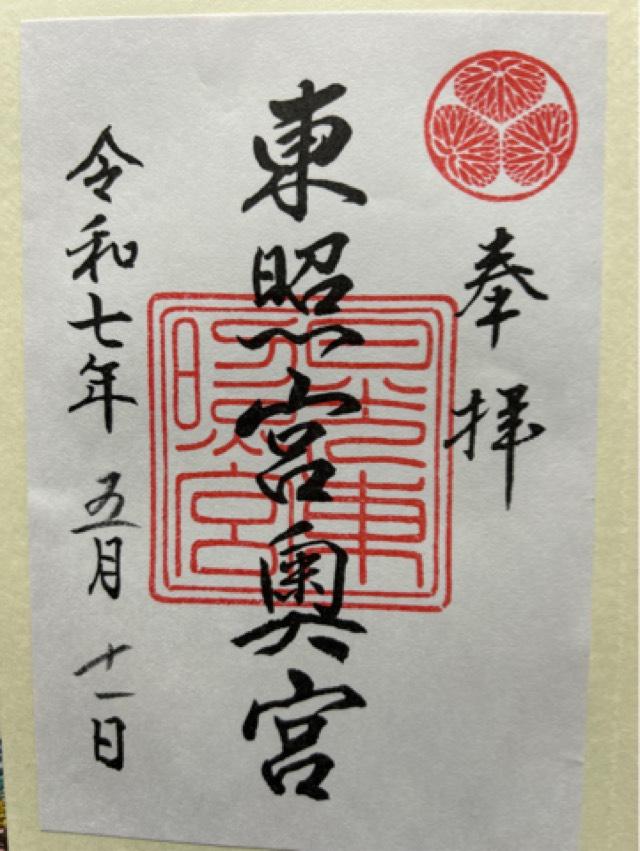 奉拝
東照宮奥宮
日光東照宮
令和七年 五月 十一日